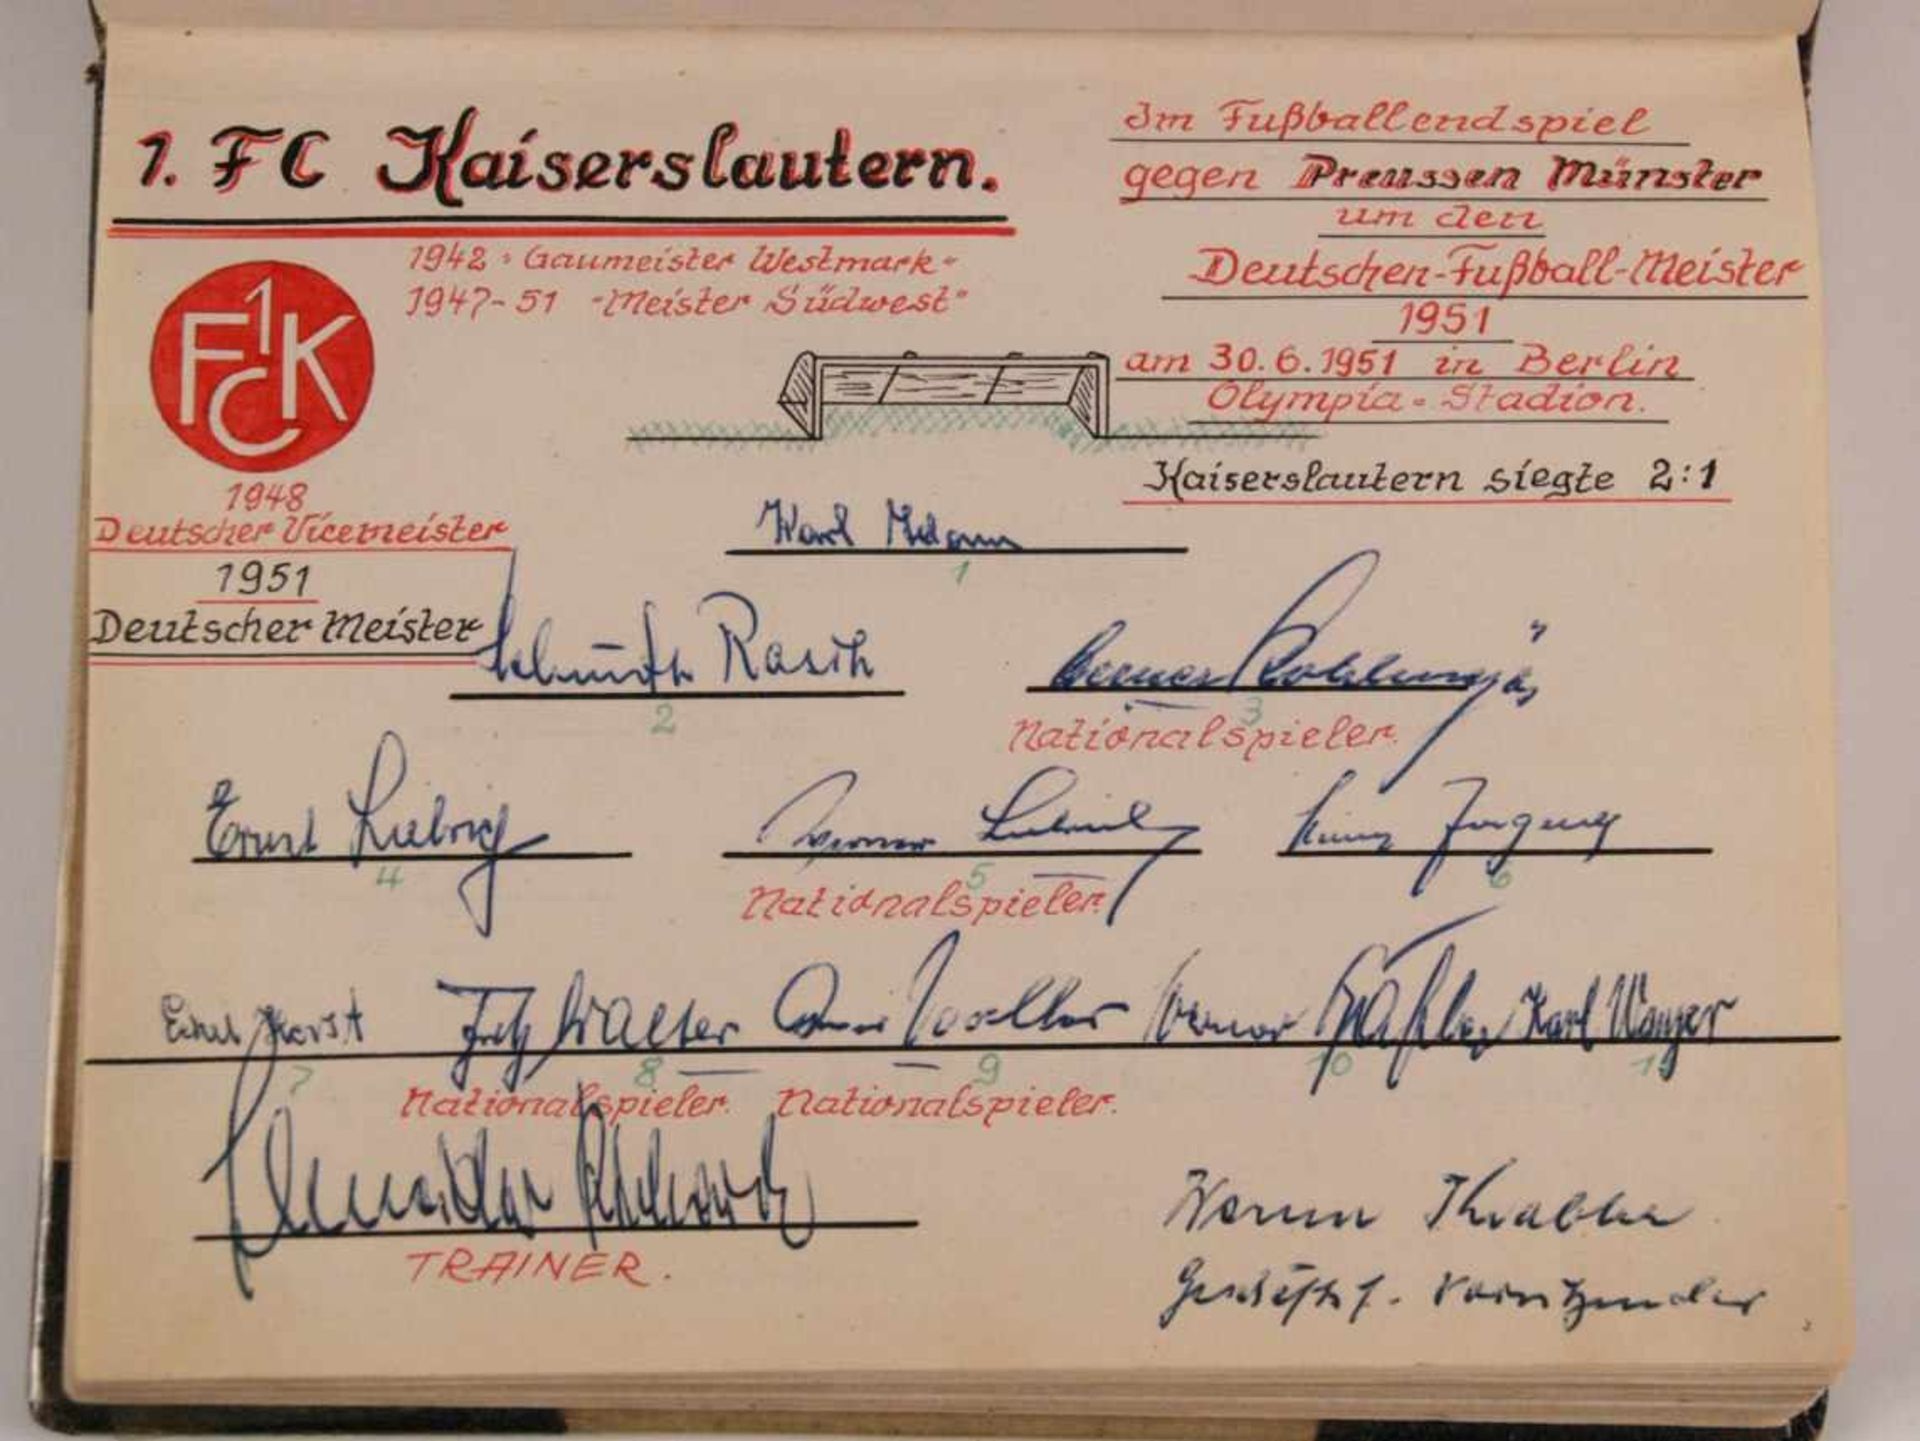 1. FC Kaiserslautern.
1942 "Gaumeister Westmark"
1947-51 "Meister Südwest"
1 FCK
1948
Deutscher Vicemeister
1951
Deutscher Meister
Im Fußballendspiel
gegen Preussen Münster
um den
Deutschen-Fußball-Meister
1951
am 30.6.1951 in Berlin
Olympia-Stadion.
Kaiserslautern siegte 2:1
Karl Adam
1
Helmuth Rasch
2
Werner Kohlmeyer
3
Nationalspieler.
Ernst Liebrich
4
Werner Liebrich
5
Nationalspieler.
Heinz Jergens
6
Eckel Horst
7
Fritz Walter
8
Nationalspieler.
Ottmar Walter
9
Nationalspieler.
Werner Baßler
10
Karl Wanger
11
Richard
TRAINER.
Werner Krabbe
Geschäftsf. Vorsitzender